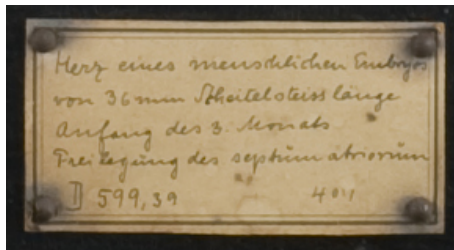 Herz eines menschlichen Embryos
von 36 mm Scheitelsteisslänge
Anfang des 3. Monats
Freilegung des septum atriorum
D 599,39 4011